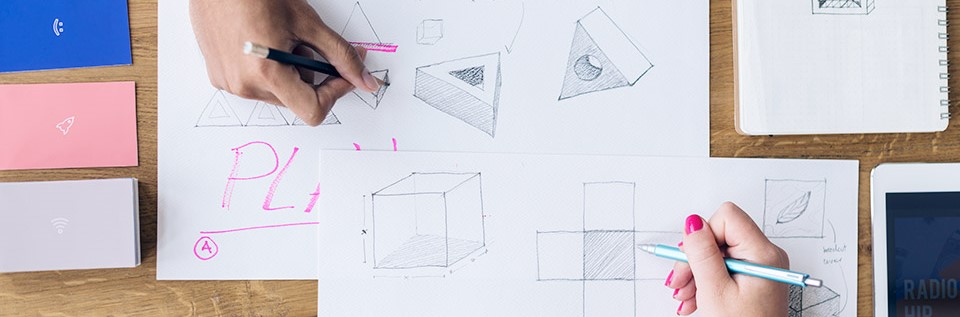 PLA
A
x
RADIO
HIP